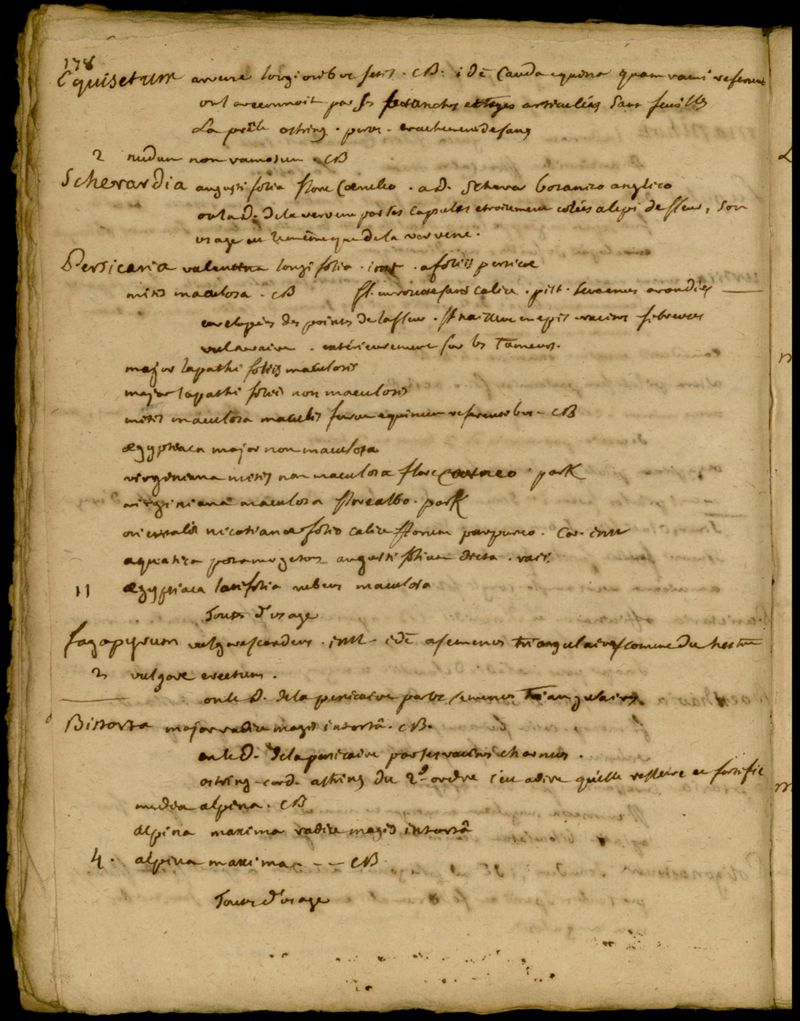 178
Equisetum arvense longioribus setis . CB. idē Cauda equina quam rami referunt
on la reconnoit par ses branches et tiges articulées sans feuilles
La prele astring .
2 nudum non ramosum . CB
Scherardia angusti folia flore Coeruleo . a D. Scherar botanico anglico
on la D. de la verveine par ses capsules etroitement colées a lepi de fleur, son
usage est le meme que de la verveine .
Persicaria valentina longifolia . inst . a foliis persicae
mitis maculosa . CB fl. sans calice . pist . semences arondies
envelopées des pointes de la fleur . fl. en epis racines fibreuses
vulneraire . extérieurement sur les Tumeurs .
major lapathi foliis maculosis
major lapathi foliis non maculosis
mitis maculosa maculis ferrum equinum referentibus . CB
ægyptiaca major non maculosa
virginiana mitis non maculosa flore Carneo . park
virginiana maculosa flore albo . park
orientalis nicotianæ folio calice florum purpureo . Cor. inst
aquatica potamogeton angusti folium dicta .
11 ægyptiaca latifolia rubens maculosa
Toutes d'usage
fagopyrum vulgare scandens . inst . idē a semenes triangulaires comme du hestre
2 vulgare erectum .
on le D. de la persicaire par les semences Triangulaires
Bistorta major radice magis intorta . CB .
on le D. de la persicaire par ses racines charnues .
astring . cord . astring du 2d. ordre c'est a dire qu'elle resserre et fortifie
media alpina . CB
alpina maxima radice magis intorta
4 . alpina maxima - - - CB .
Toutes d'usage